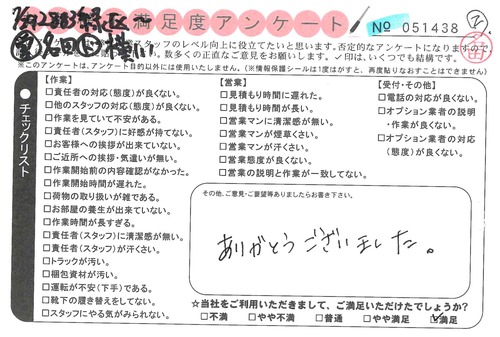 7/29 2883 緑区〜
満足度アンケート
No 051438
名田 横い
スタッフのレベル向上に役立てたいと思います。否定的なアンケートになりますので
数多くの正直なご意見をお願いします。✓印は、いくつでも結構です。
※このアンケートは、アンケート目的以外には使用いたしません。(※情報保護シールは1度はがすと、再度貼りなおすことはできません)
●チェックリスト
【作業】
□責任者の対応(態度)が良くない。
□他のスタッフの対応(態度)が良くない。
□作業を見ていて不安がある。
□責任者(スタッフ)に好感が持てない。
□お客様への挨拶が出来ていない。
□ご近所への挨拶・気遣いが無い。
□作業開始前の内容確認がなかった。
□作業開始時間が遅れた。
□荷物の取り扱いが雑である。
□お部屋の養生が出来ていない。
□作業時間が長すぎる。
□責任者(スタッフ)に清潔感が無い。
□責任者(スタッフ)が汗くさい。
□トラックが汚い。
□梱包資材が汚い。
□運転が不安(下手)である。
□靴下の履き替えをしてない。
□スタッフにやる気がみられない。
【営業】
□見積もり時間に遅れた。
□見積もり時間が長い。
□営業マンに清潔感が無い。
□営業マンが煙草くさい。
□営業マンが汗くさい。
□営業態度が良くない。
□営業の説明と作業が一致してない。
【受付・その他】
□電話の対応が良くない。
□オプション業者の説明
・作業が良くない。
□オプション業者の対応
(態度)が良くない。
その他、ご意見・ご要望等ありましたらお書き下さい。
ありがとうございました。
☆当社をご利用いただきまして、ご満足いただけたでしょうか?
□不満 □やや不満 □普通 □やや満足 ☑満足